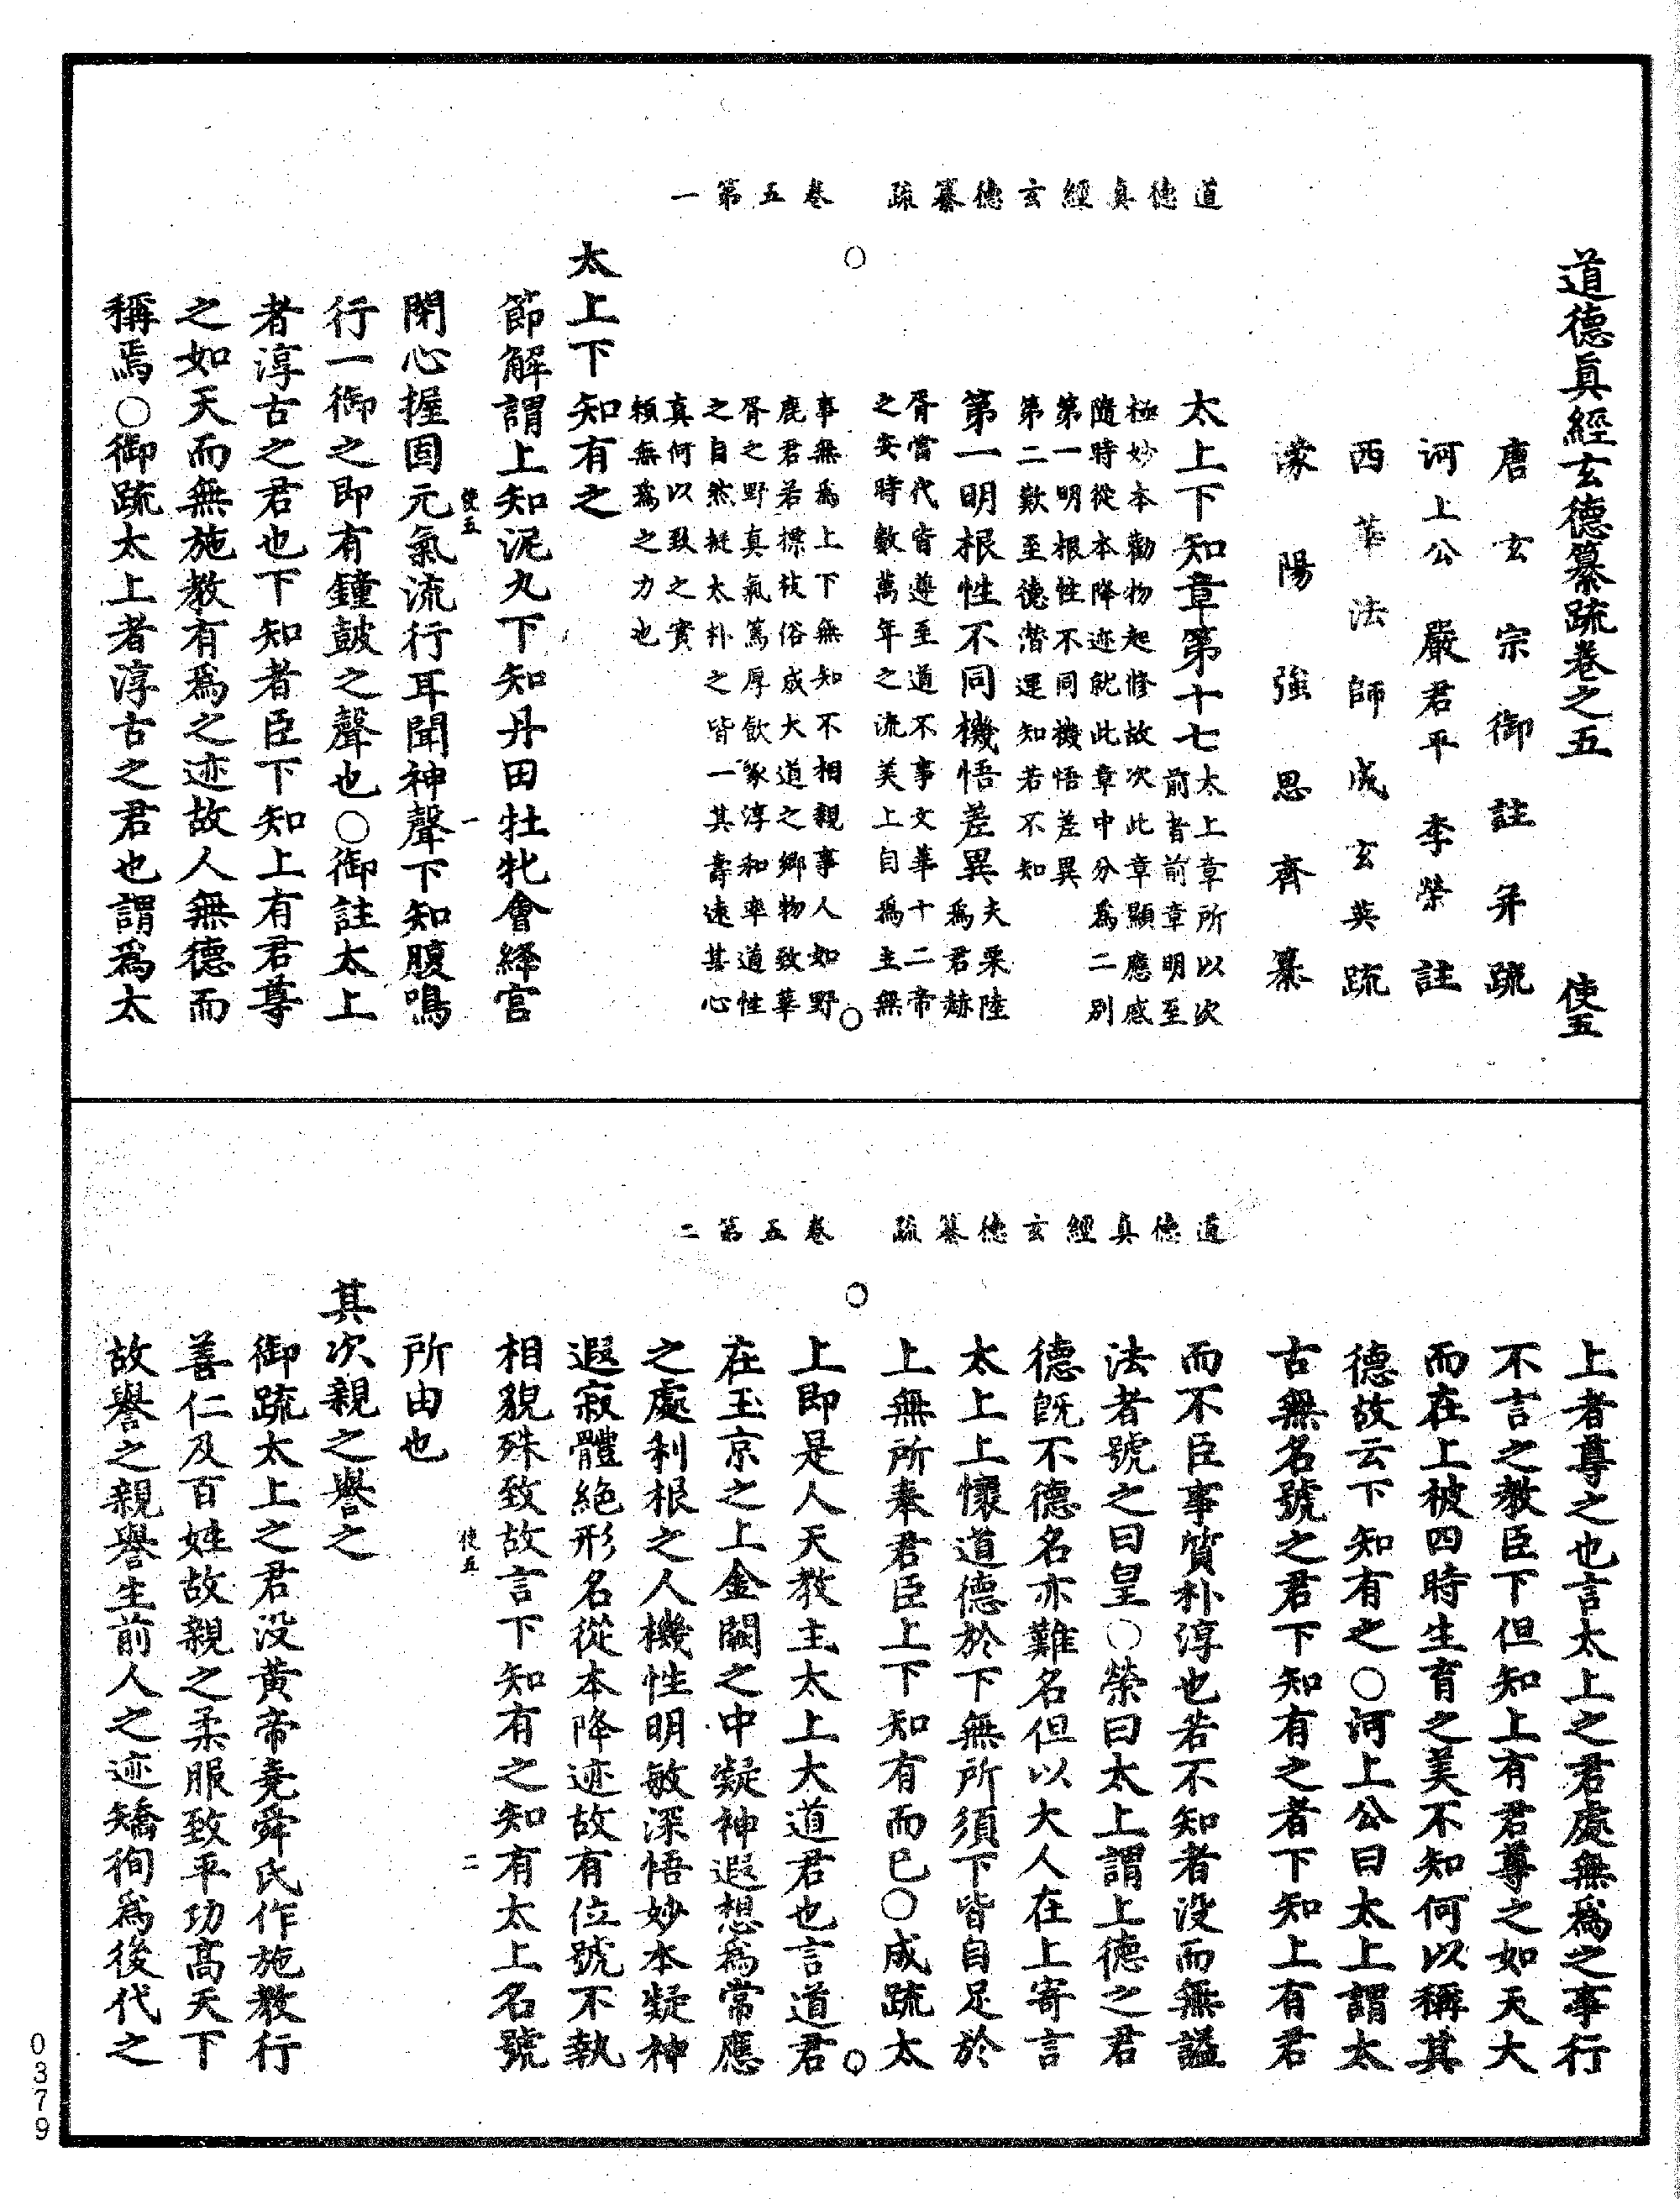 道德真經玄德纂疏　卷五第一
道德眞經玄德纂疏卷之五　使五
唐玄宗御註并疏
河上公　嚴君平　李榮註
西華法師成玄英疏
濛陽強思齊纂
太上下知章第十七
太上章所以次
前者前章明至
極妙本勸物起修故次此章顯應感
隨時從本降迹就此章中分爲二別
第一明根性不同機悟差異
第二歎至德潛運知若不知
第一明根性不同機悟差異
夫栗陸
爲君赫
胥當代皆遵至道不事文華十二帝
之安時數萬年之流美上自爲主無
事無爲上下無知不相親事人如野
鹿君若標枝俗成大道之鄉物致華
胥之野真氣篤厚飲啄淳和率道性
之自然挺太朴之皆一其壽遠其心
真何以致之實
賴無爲之力也
太上下知有之
節解謂上知泥丸下知丹田牡牝會絳宫
閉心握固元氣流行耳聞神聲下知腹鳴
使五　一
行一御之即有鐘皷之聲也○御註太上
者淳古之君也下知者臣下知上有君尊
之如天而無施教有爲之迹故人無德而
稱焉○御疏太上者淳古之君也謂爲太
道德真經玄德纂疏　卷五第二
上者尊之也言太上之君處無爲之事行
不言之教臣下但知上有君尊之如天大
而在上被四時生育之美不知何以稱其
德故云下知有之○河上公曰太上謂太
古無名號之君下知有之者下知上有君
而不臣事質朴淳也若不知者没而無謚
法者號之曰皇○榮曰太上謂上德之君
德旣不德名亦難名但以大人在上寄言
太上上懷道德於下無所須下皆自足於
上無所奉君臣上下知有而已○成疏太
上即是人天教主太上大道君也言道君
在玉京之上金闕之中凝神遐想爲常應
之處利根之人機性明敏深悟妙本凝神
遐寂體絶形名從本降迹故有位號不執
相貌殊致故言下知有之知有太上名號
使五　二
所由也
其次親之譽之
御疏太上之君没黃帝堯舜氏作施教行
善仁及百姓故親之柔服致平功高天下
故譽之親譽生前人之迹矯徇爲後代之
0379